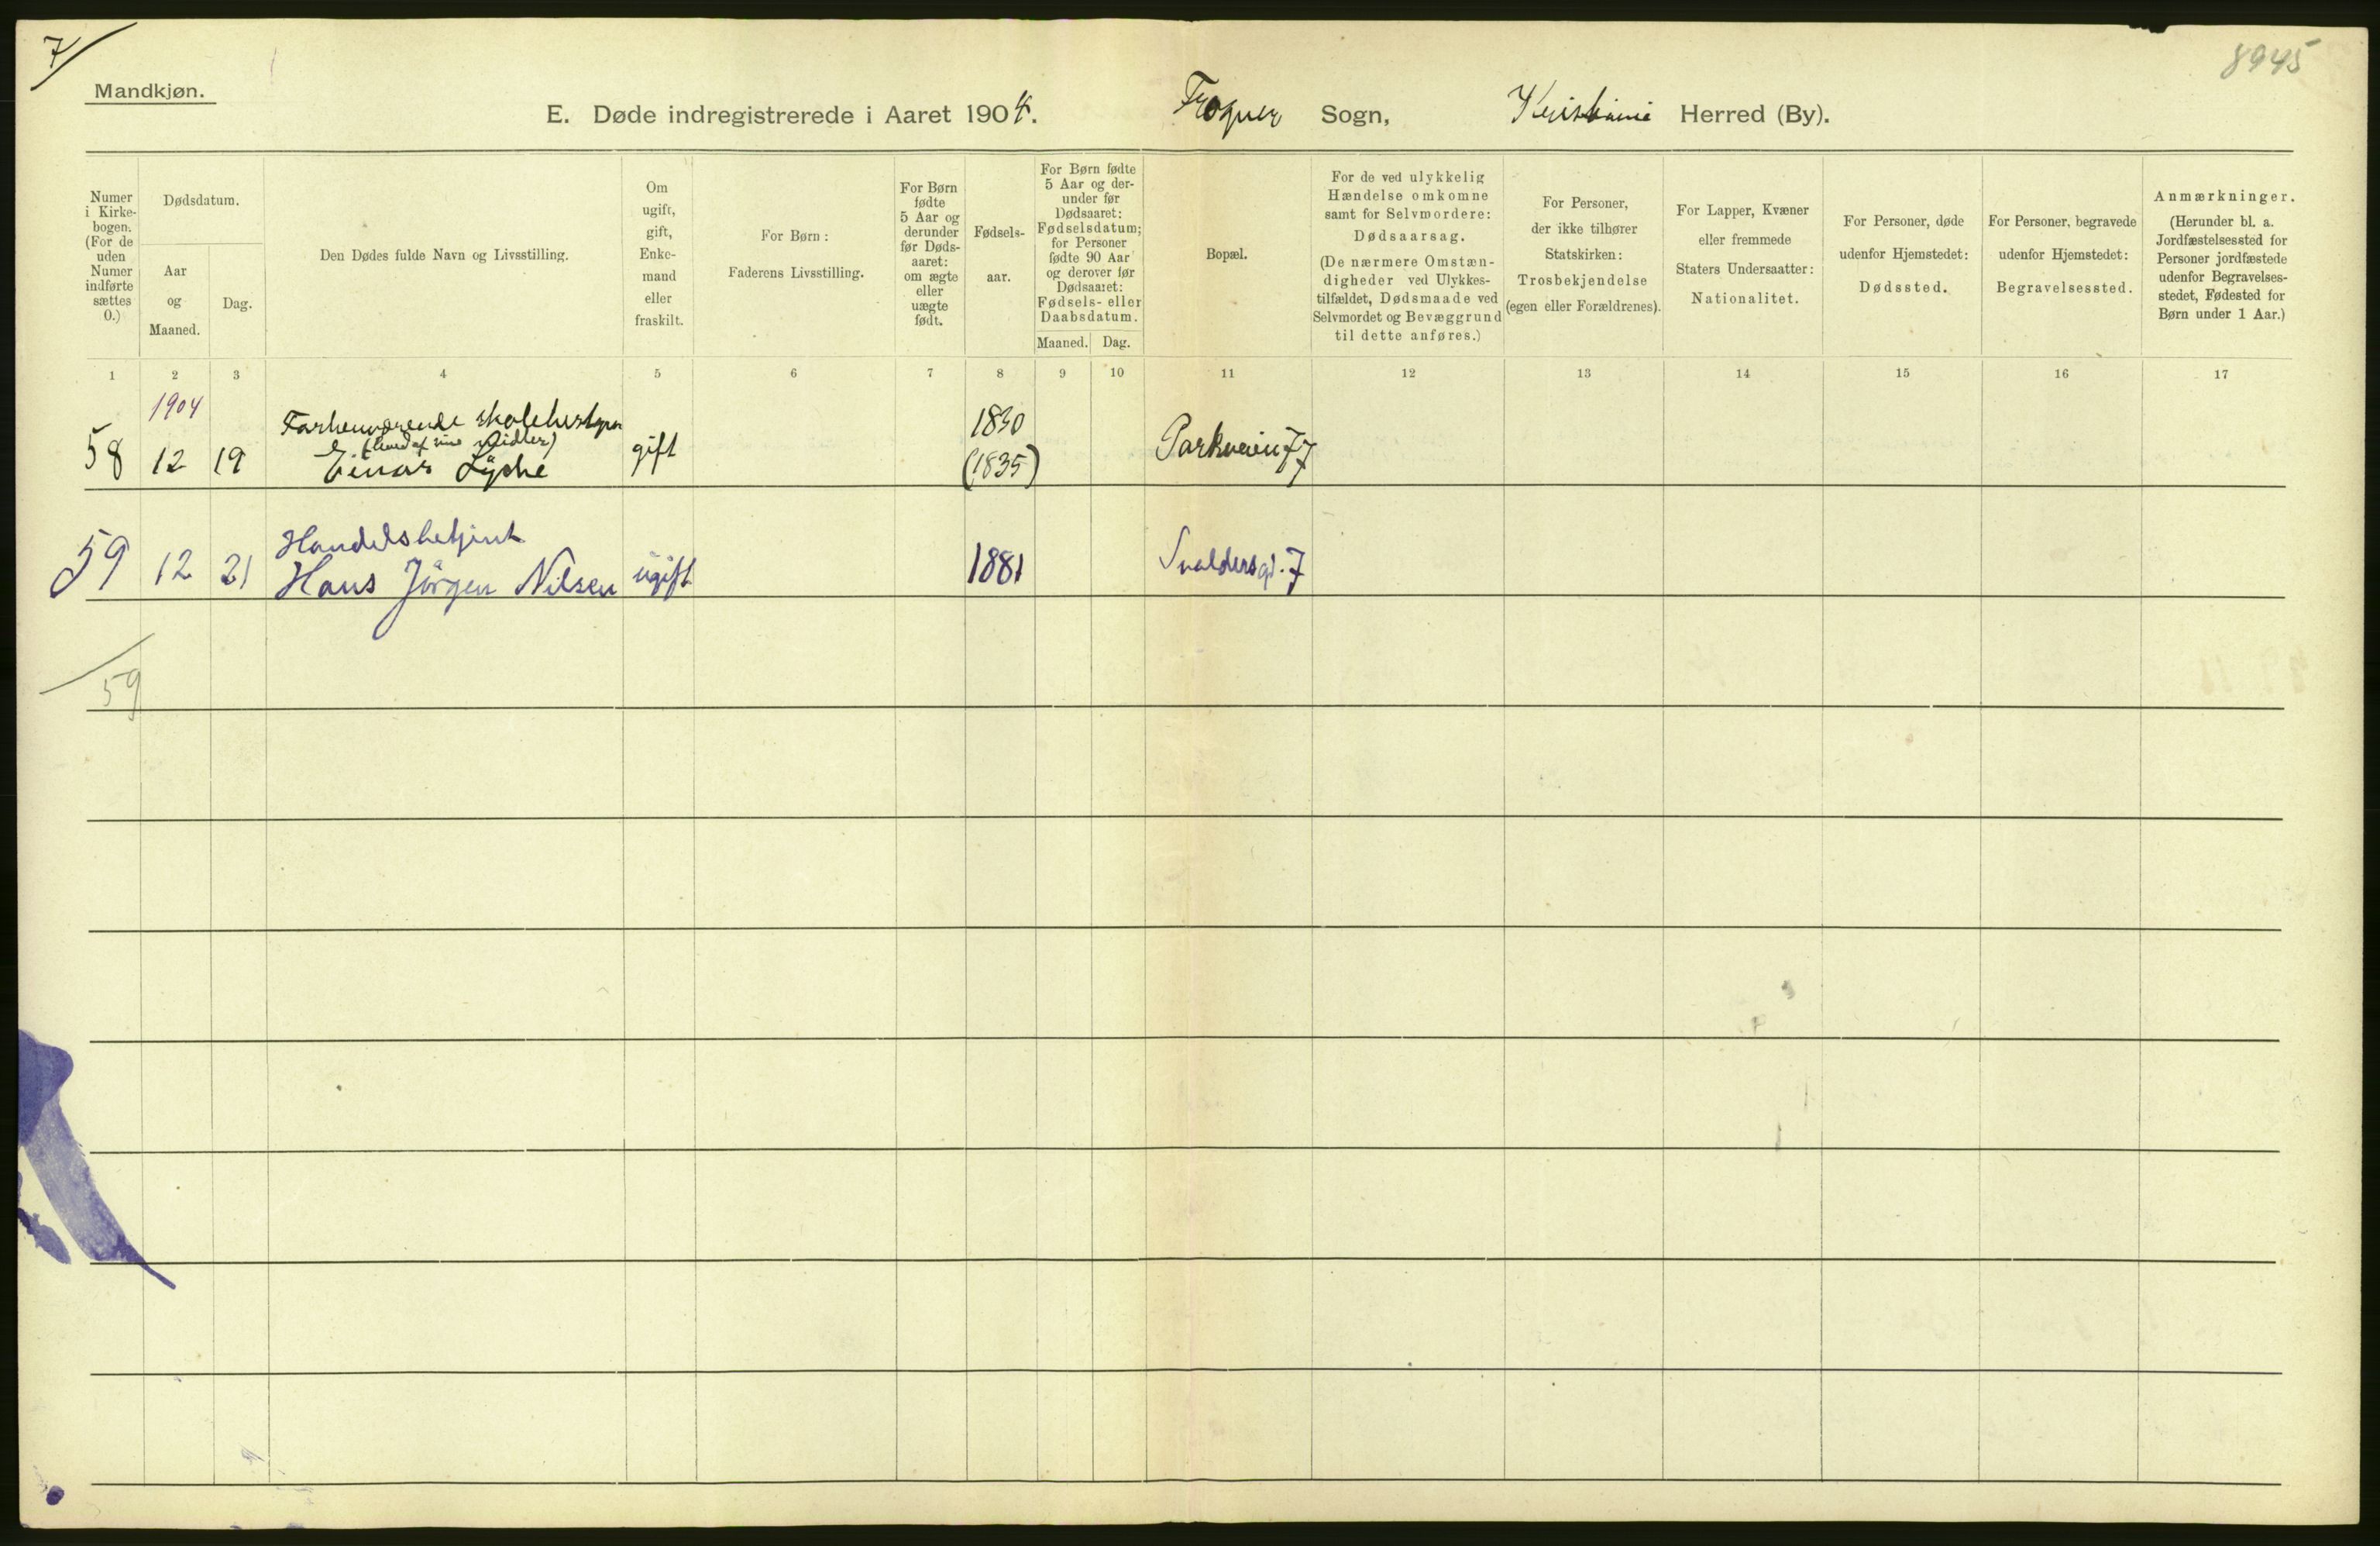 7
8945
Mandkjøn.
E. Døde indregistrerede i Aaret 1904. Frogner Sogn, Kristiania Herred (By).
Numer i Kirkebogen. (For de uden Numer indførte sættes 0.)
Dødsdatum.
Aar og Maaned.
Dag.
Den Dødes fulde Navn og Livsstilling.
Om ugift, gift, Enkemand eller fraskilt.
For Børn:
Faderens Livsstilling.
For Børn fødte 5 Aar og derunder før Dødsaaret: om ægte eller uægte født.
Fødselsaar.
For Børn fødte 5 Aar og derunder før Dødsaaret: Fødselsdatum; for Personer fødte 90 Aar og derover før Dødsaaret: Fødsels- eller Daabsdatum.
Maaned. Dag.
Bopæl.
For de ved ulykkelig Hændelse omkomne samt for Selvmordere: Dødsaarsag.
(De nærmere Omstændigheder ved Ulykkestilfældet, Dødsmaade ved Selvmordet og Bevæggrund til dette anføres.)
For Personer, der ikke tilhører Statskirken: Trosbekjendelse (egen eller Forældrenes).
For Lapper, Kvæner eller fremmede Staters Undersaatter: Nationalitet.
For Personer, døde udenfor Hjemstedet: Dødssted.
For Personer, begravede udenfor Hjemstedet: Begravelsessted.
Anmærkninger.
(Herunder bl. a. Jordfæstelsessted for Personer jordfæstede udenfor Begravelsesstedet, Fødested for Børn under 1 Aar.)
1 2 3 4 5 6 7 8 9 10 11 12 13 14 15 16 17
1904
Forhenværende skolebestyrer
(leved af sine Midler)
58 12 19 Einar Lyche gift 1830 (1835) Parkveien 77
Handelsbetjent
59 12 21 Hans Jörgen Nilsen ugift 1881 Svoldersgd. 7
59